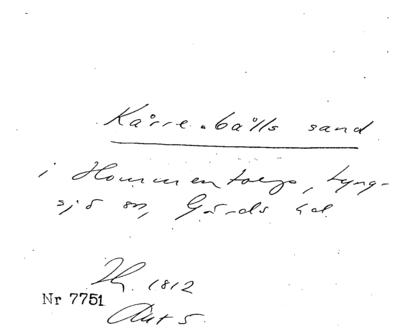 Kårre-bålls sand
i Hommentorp, Lyng-
sjö sn, Gärds hd
Nr 7751 1812
Akt 5.